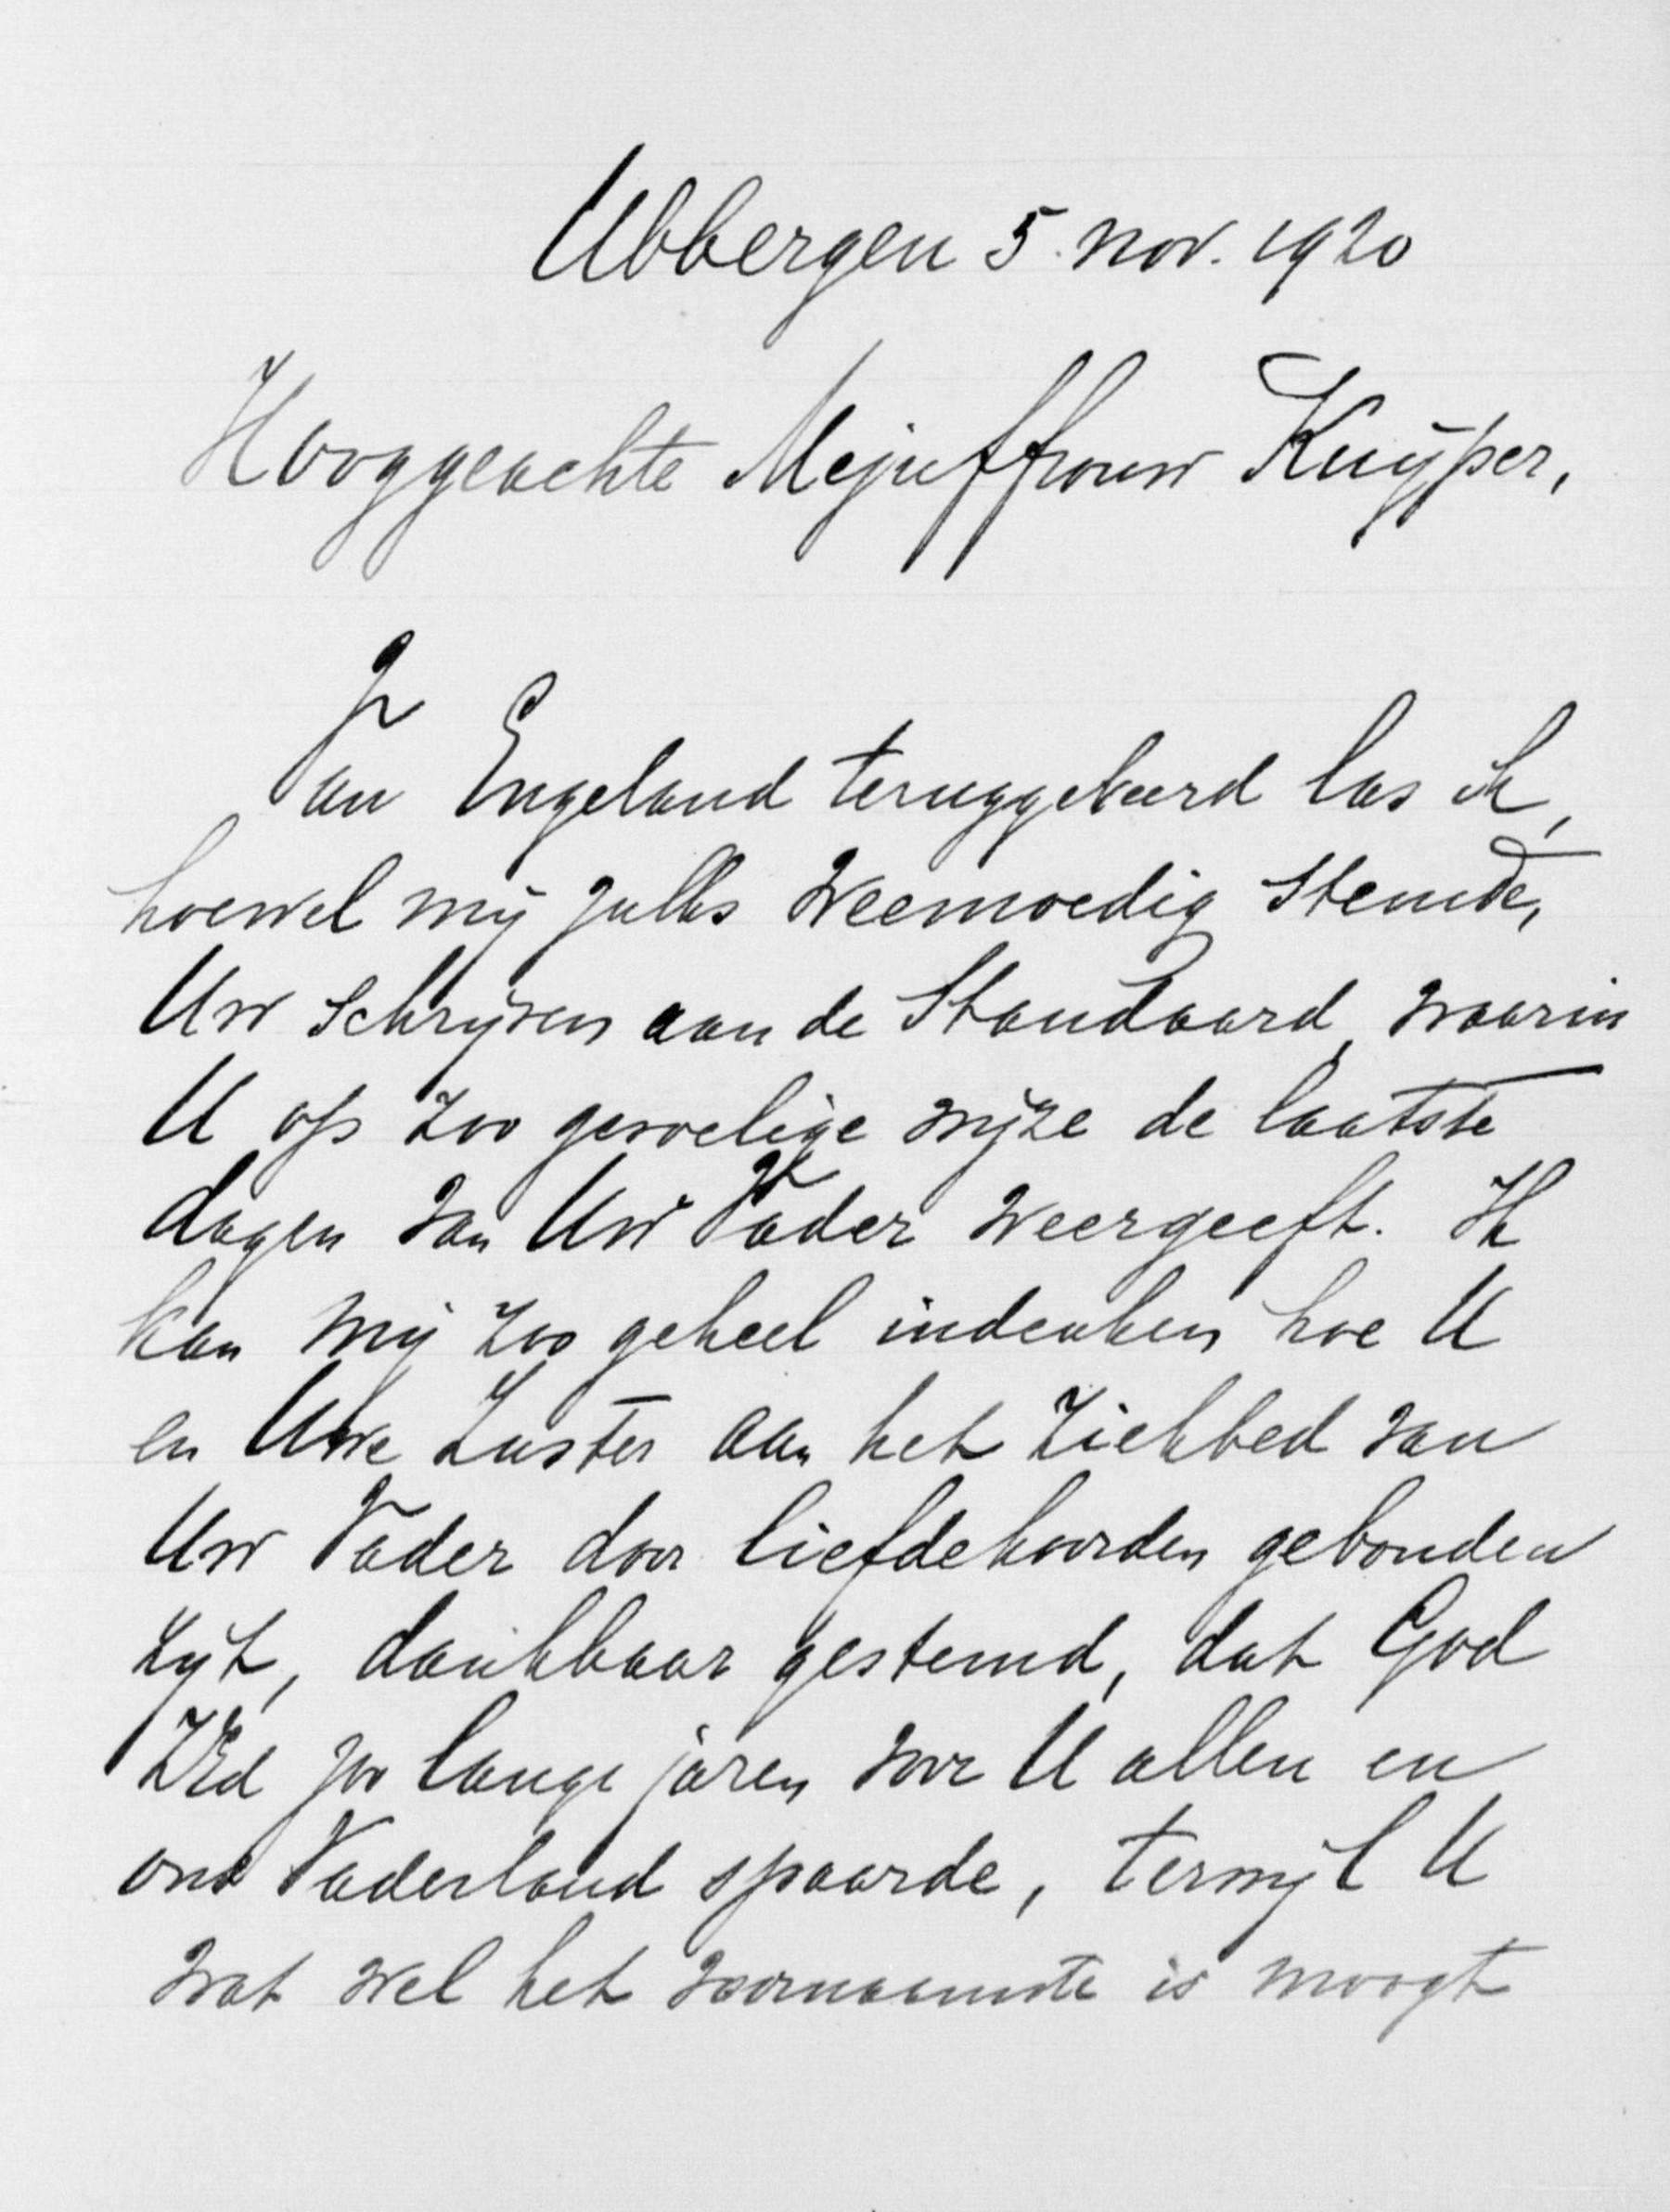 Ubbergen 5. nov. 1920
Hooggeachte Mejuffrouw Kuÿper,
Van Engeland teruggekeerd las ik,
hoewel mij zulks weemoedig stemde,
Uw schrijven aan de Standaard, waarin
U op zoo gevoelige wijze de laatste
dagen van Uw Vader weergeeft. Ik
kan mij zoo geheel indenken hoe U
en Uwe Zuster aan het ziekbed van
Uw Vader door liefdekoorden gebonden
zijt, dankbaar gestemd, dat God
ZEd zoo lange jaren voor U allen en
ons Vaderland spaarde, terwijl U
wat wel het voornaamste is moogt